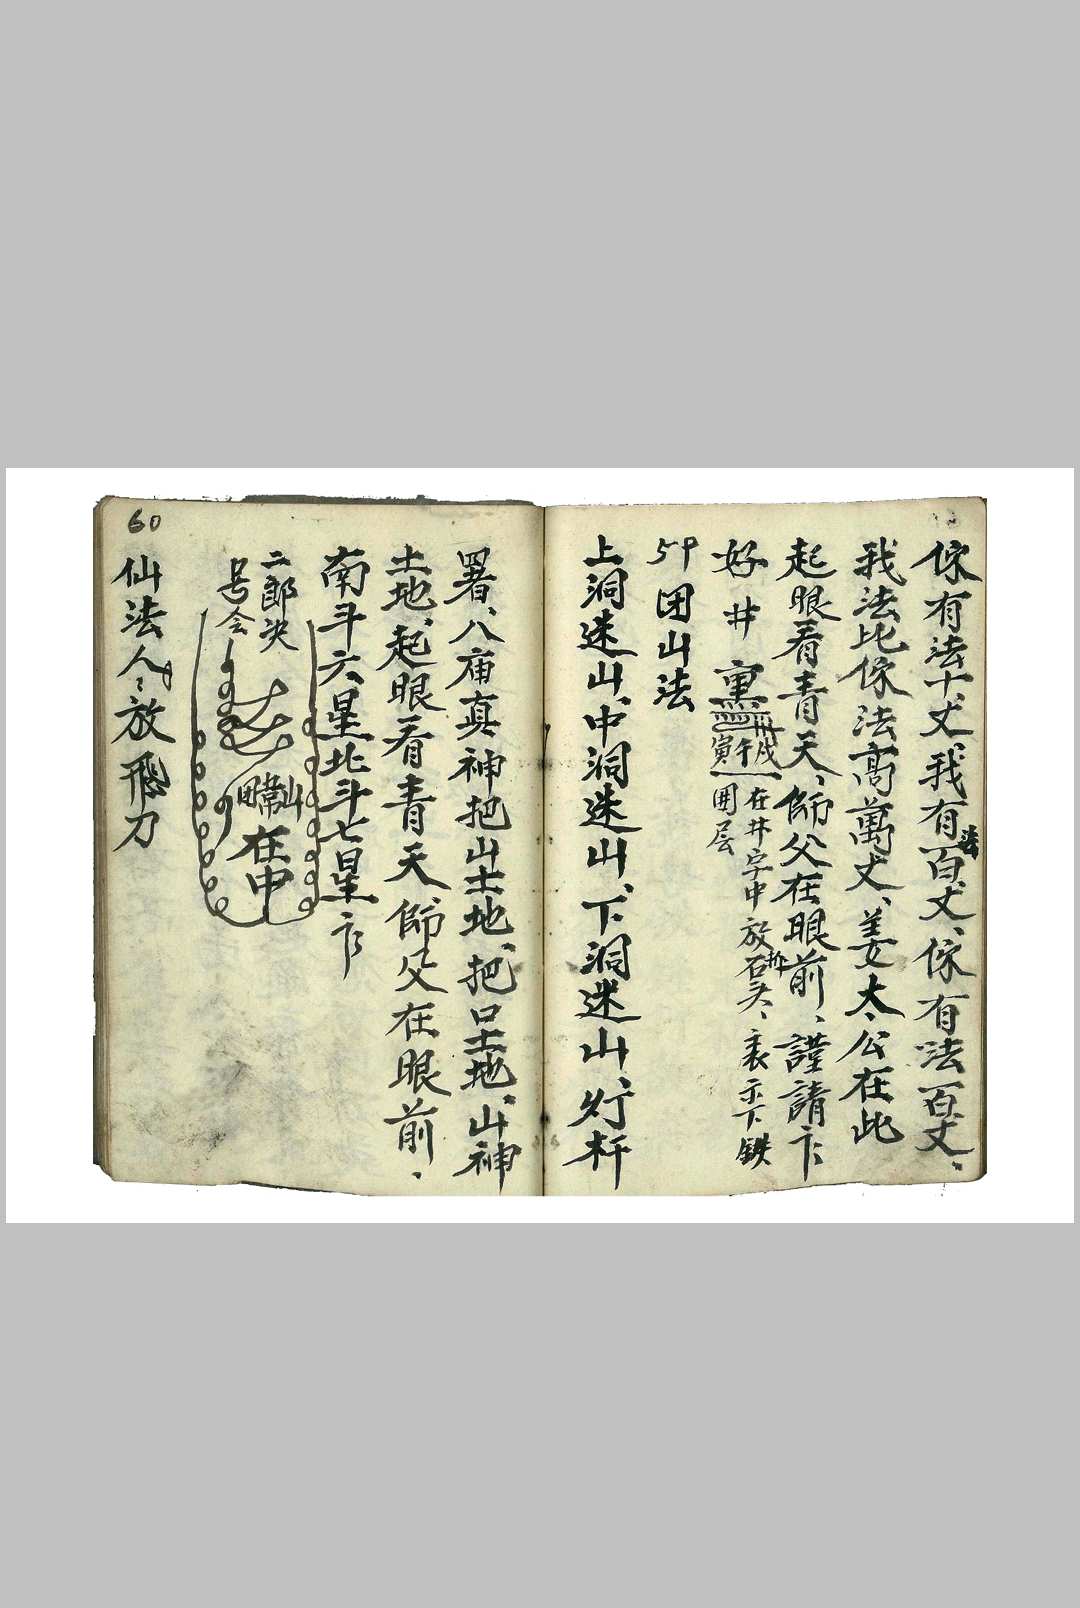 你有法十丈、我有法百丈、你有法百丈、
我法比你法高萬丈、姜太公在此
起眼看青天、師父在眼前、謹請卞
好井
寅午戌
囲层
在井字中放石灰、
下鉄
59 囲山法
上洞迷山、中洞迷山、下洞迷山、灯杆
署、八庙真神把山土地、把口土地、山神
土地、起眼看青天、師父在眼前、
南斗六星北斗七星卞
二郎决
号令
山
在中
60
仙法人人放飛刀